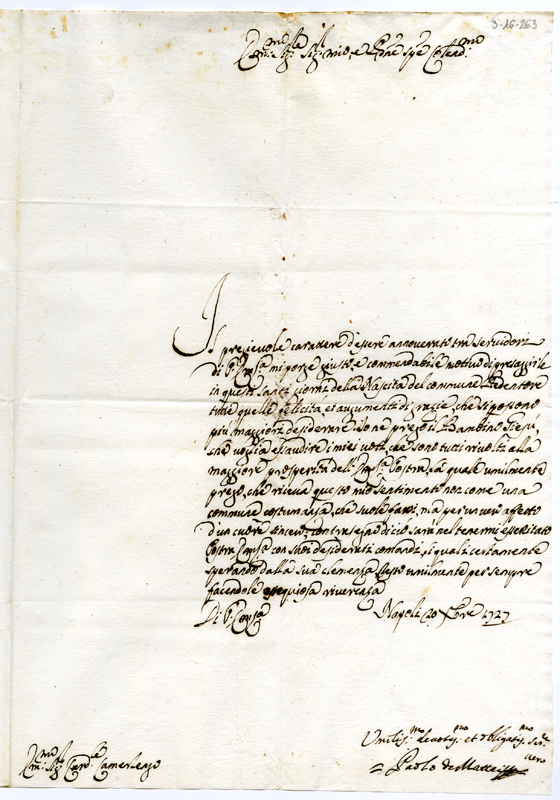 3-16-263
Em̃.mo e R.mo Sig.r mio, e P̃rone sp̃re Colend.mo
Il pregievole carattere d'essere annoverato trà servidori
di V. Em̃za mi porge giusto, e commendabile motivo di presaggirle
in questi santi giorni della Nascita del commune Redentore
tutte quelle felicità, et augumenti di grazie, che si possono
più maggiori desiderare. Onde prego il Bambino Giesù,
che voglia esaudire i miei voti, che sono tutti rivolti alla
maggiore prosperità dell' Em̃za Vostra, la quale umilmente
prego, che riceva questo mio sentimento non come una
commune costumanza, che suole farsi, mà per un vero affetto
d'un cuore sincero; contrasegno di ciò sarà nel tenermi esercitato
Vostra Em̃za con suoi desiderati comandi, i quali certamente
sperando dalla sua clemenza, resto umilmente per sempre
facendole ossequiosa riverenza
Di V. Em̃za Napoli 20 Xbre 1727
Umiliss.mo devotiss.mo et obligatiss.mo Ser.re
vero
Paolo de Matteis
Em̃.mo Sig.r Card.le Camerlengo